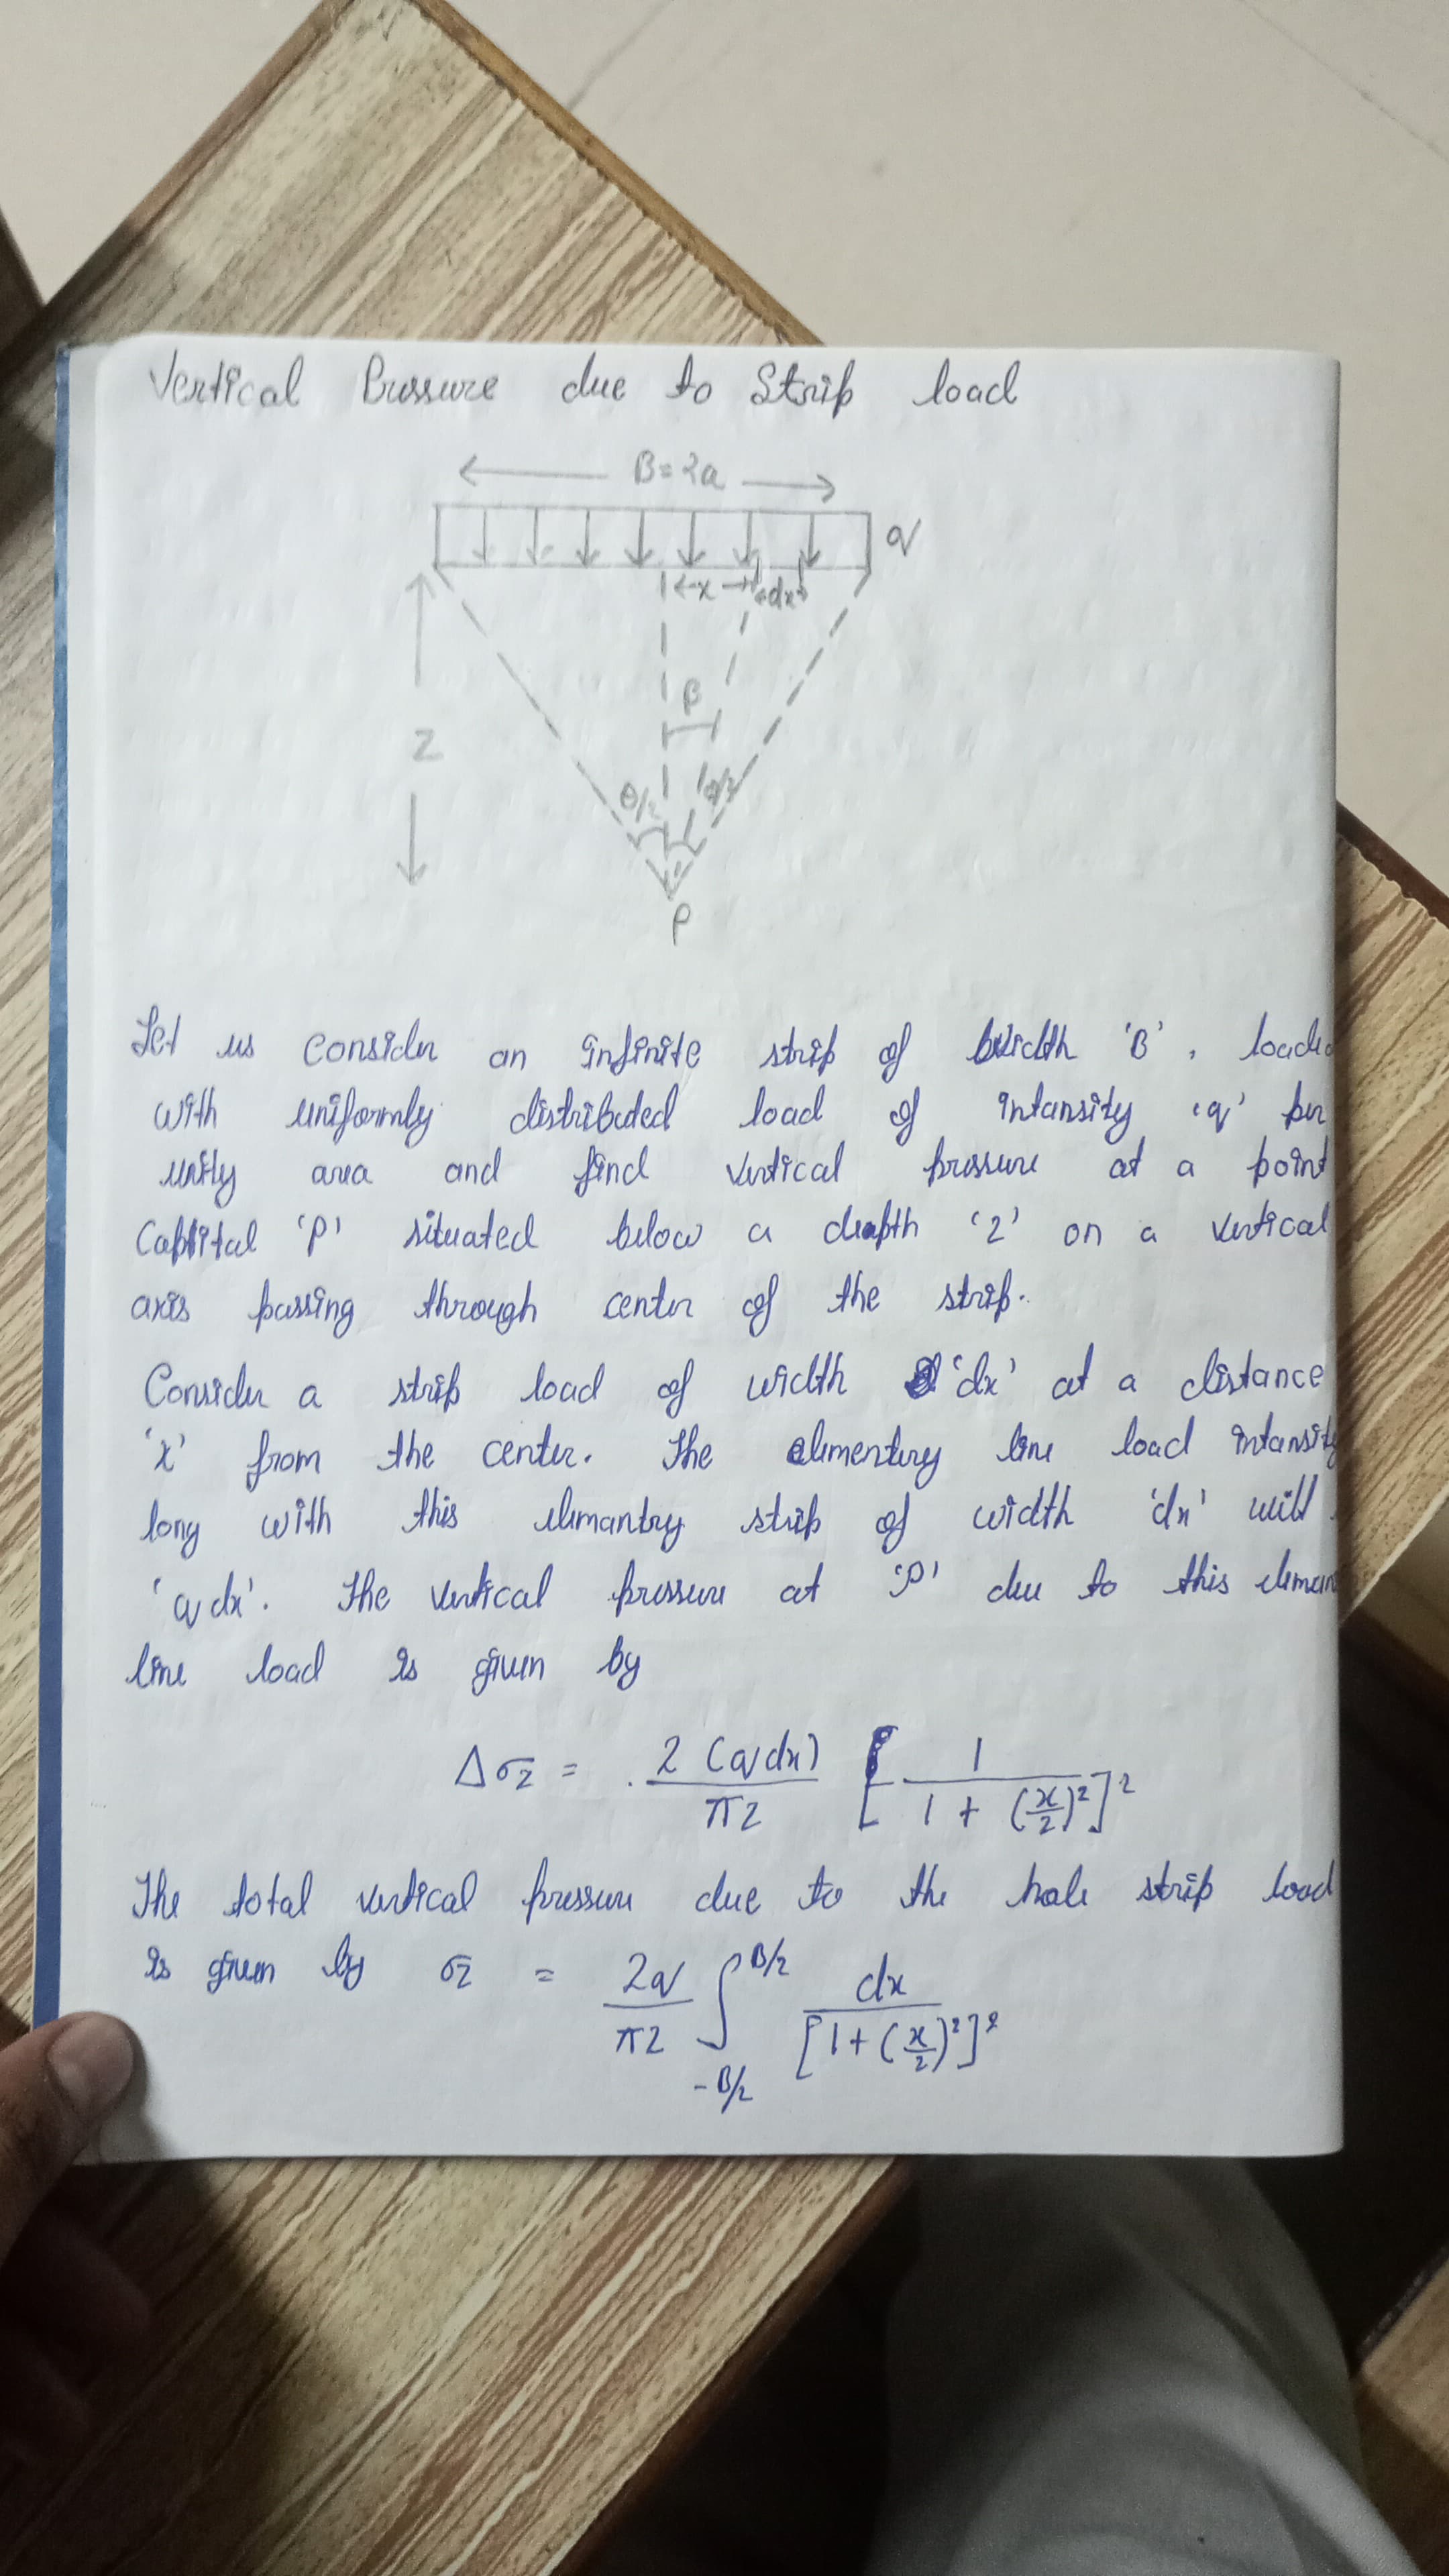 Vertical Pressure due to Strip load
B = 2a
q
x
dx
β
Z
θ/2 θ/2
P
Let us consider an infinite strip of width 'B', loade
with uniformly distributed load of intansity 'q' per
unity area and find vertical pressure at a point
Capital 'P' situated below a deapth 'Z' on a vertical
axis passing through center of the strip.
Consider a strip load of width 'dx' at a distance
'x' from the center. The elementery line load intansity
long with this elimantry strip of width 'dx' will
'q dx'. The vertical pressure at 'P' due to this eleman
line load is given by
Δσz = 2 (q dx) / πz [ 1 / 1 + (x/z)² ]²
The total vertical pressure due to the hole strip load
is given by σz = 2q / πz ∫ -B/2 B/2 dx / [1 + (x/z)²]²